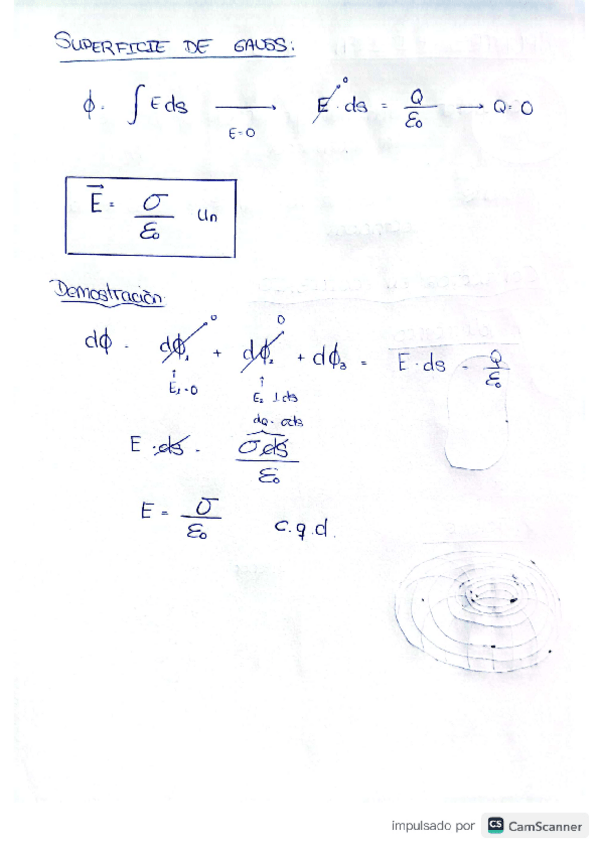 SUPERFICIE DE GAUSS:
ϕ = ∫ E ds ⟶ E · ds = Q/ε₀ → Q = 0
E=0 0
E⃗ = σ/ε₀ un
Demostración:
dϕ = dϕ₁ + dϕ₂ + dϕ₃ = E · ds = Q/ε₀
0 0
↑ ↑
E₁=0 E₂ ⊥ ds
dq = σds
E · ds = σds/ε₀
E = σ/ε₀ c.q.d.
impulsado por CS CamScanner